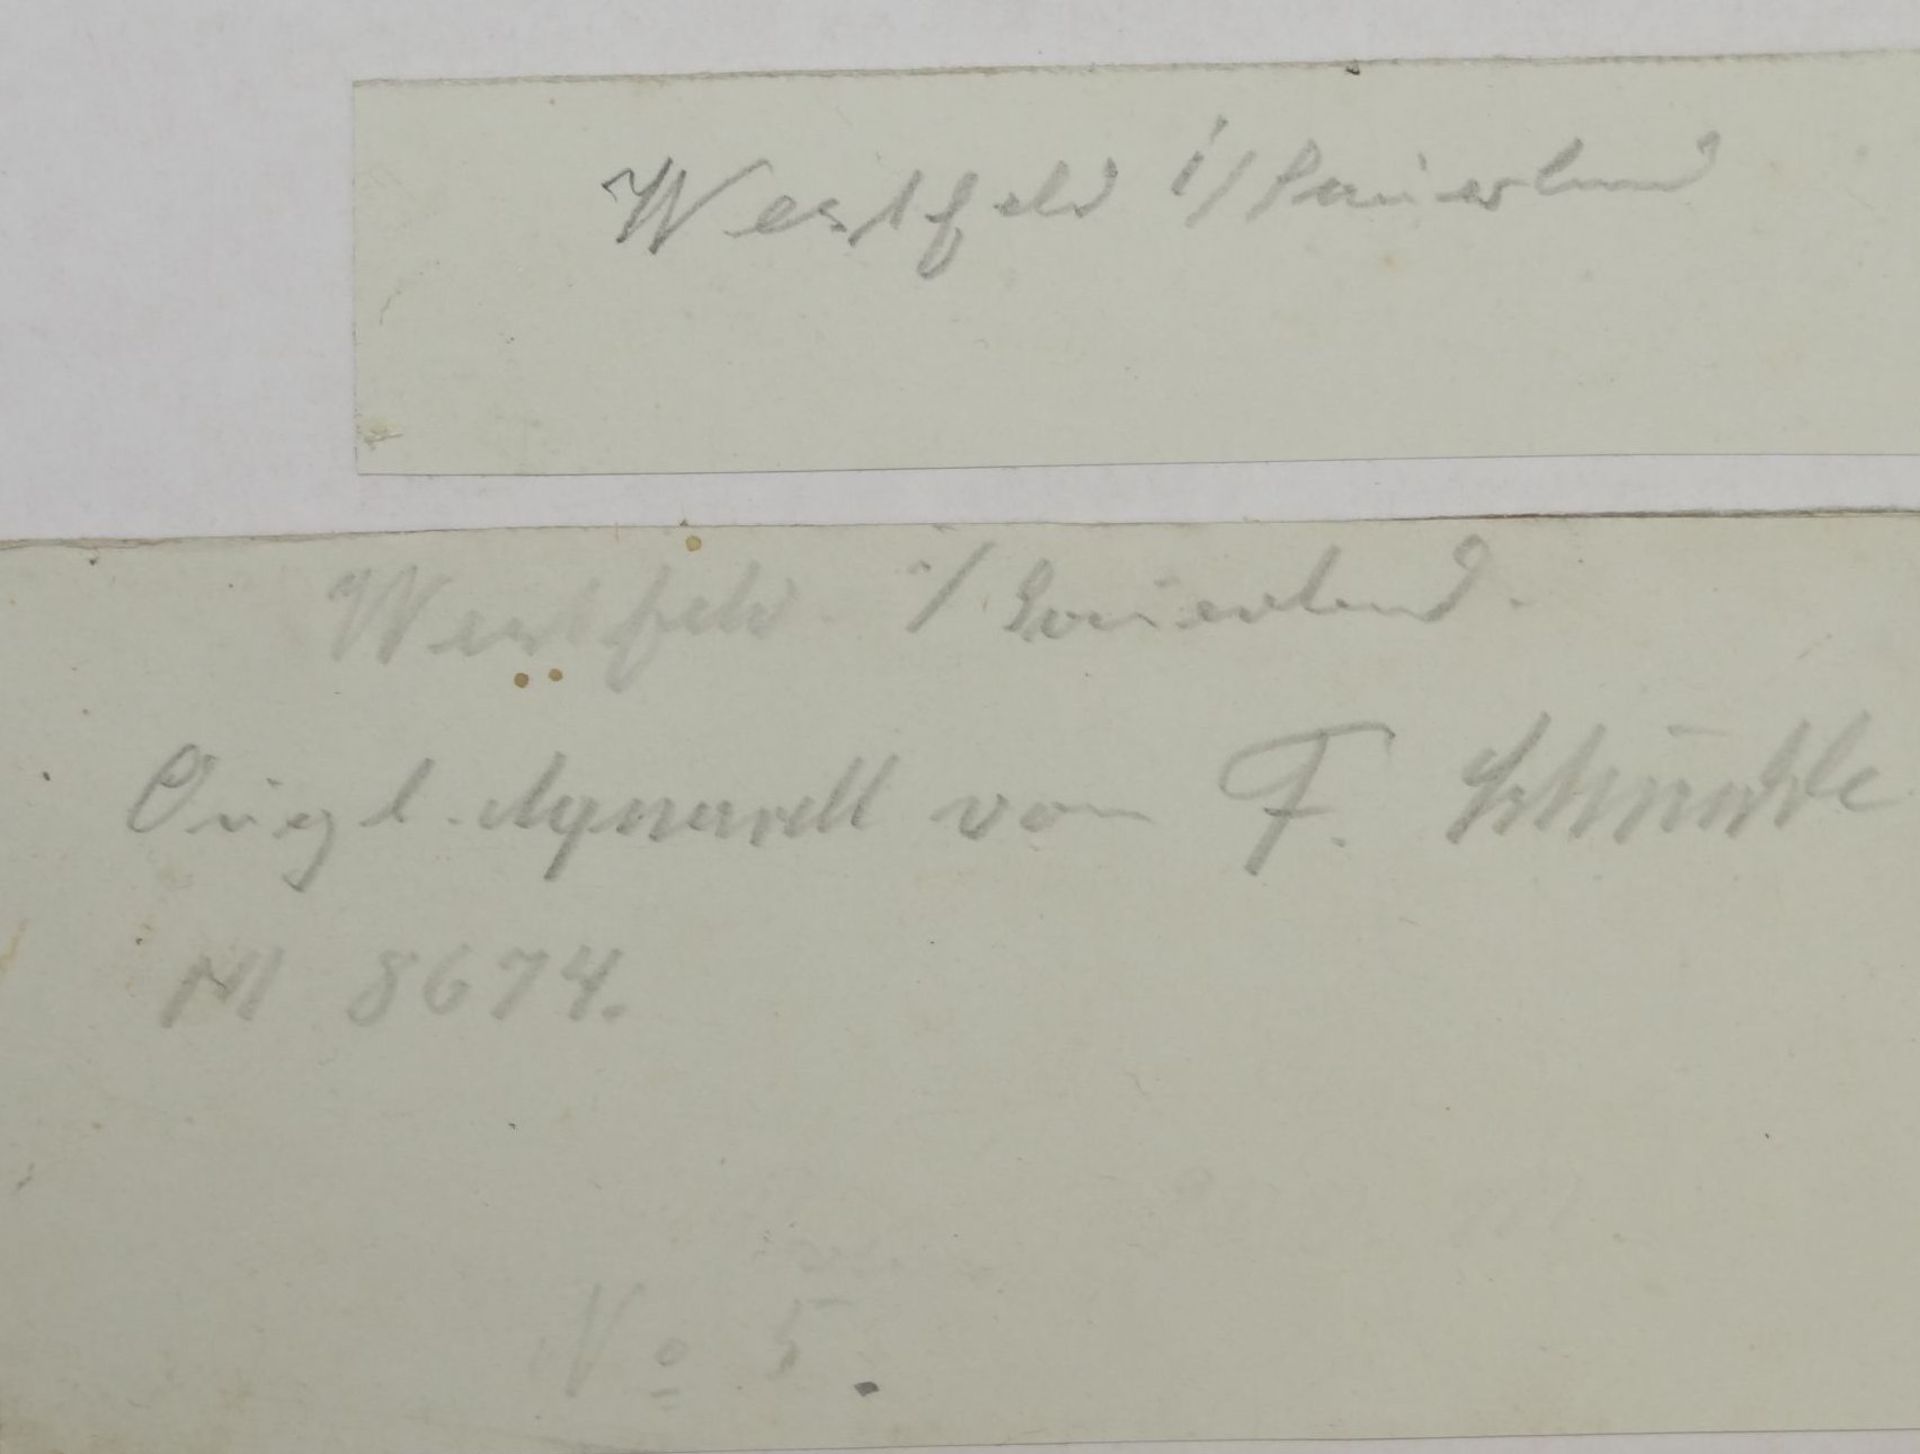 Westfeld i/Sauerland
Westfeld. i/Sauerland.
Origl.-Aquarell von F.
M 8674.
No 5.